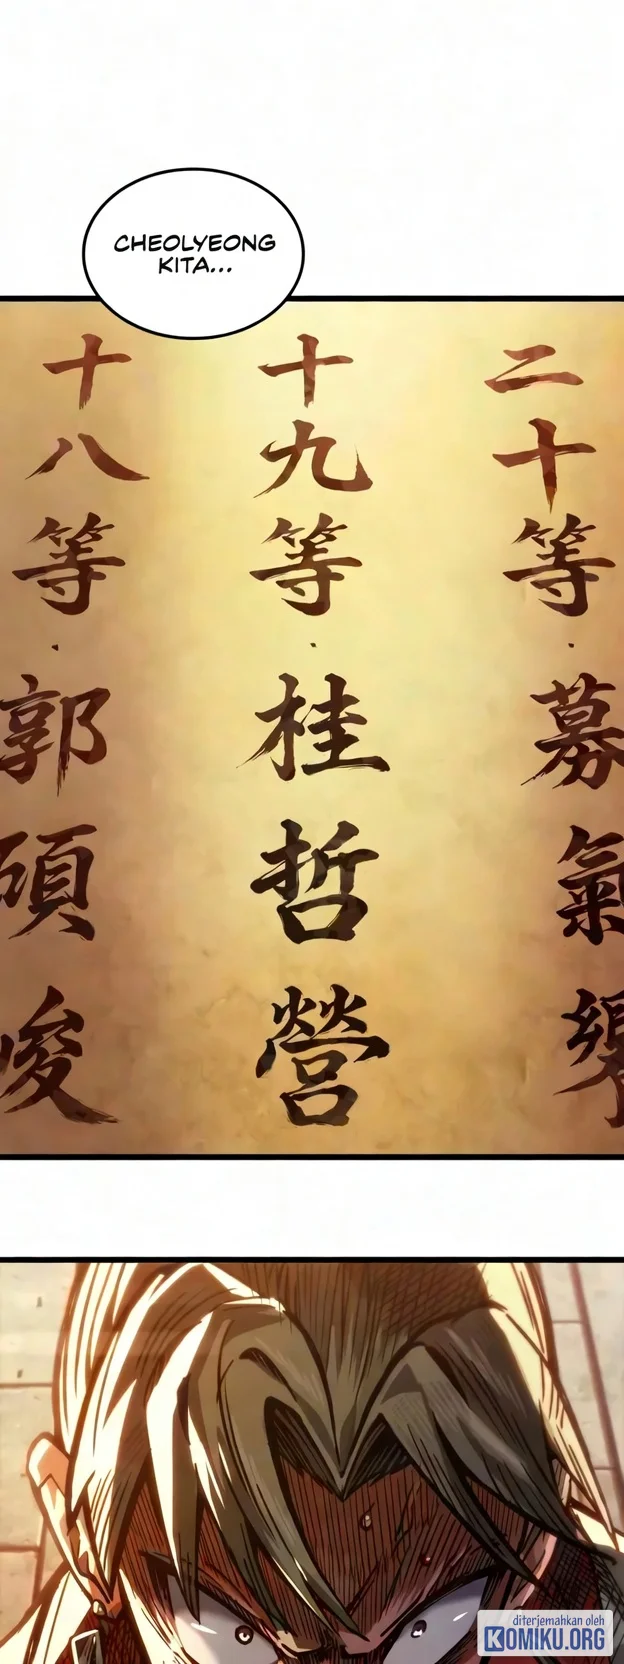 CHEOLYEONG
KITA...
二十等·募氣
十九等·桂哲營
十八等·郭碩峻
diterjemahkan oleh
KOMIKU.ORG